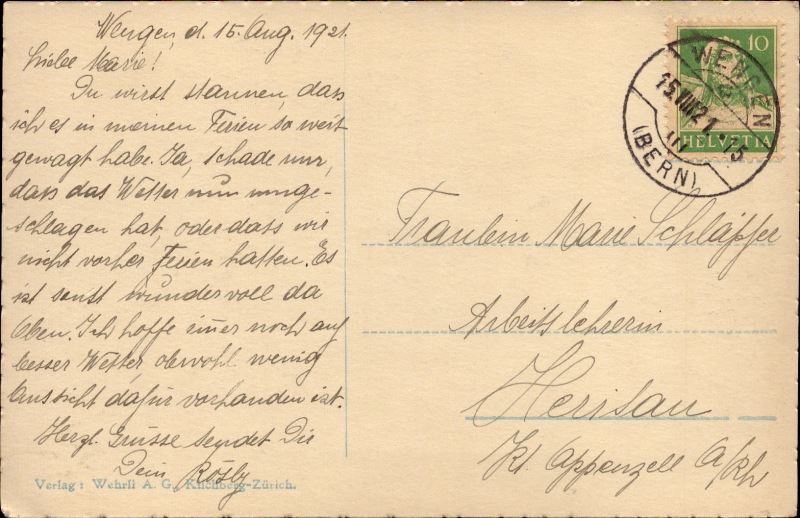 Wengen, d. 15. Aug. 1921.
Liebe Marie!
Du wirst staunen, dass
ich es in meinen Ferien so weit
gewagt habe. Ja, schade nur,
dass das Wetter nun umge-
schlagen hat, oder dass wir
nicht vorher Ferien hatten. Es
ist sonst wundervoll da
oben. Ich hoffe imer noch auf
besser Wetter, obwohl wenig
Aussicht dafür vorhanden ist.
Herzl. Grüsse sendet Dir
Dein Rösly
Verlag: Wehrli A. G., Kilchberg-Zürich.
10
HELVETIA
WENGEN
15.VIII.21.-5
(BERN)
Fräulein Marie Schläpfer
Arbeitslehrerin
Herisau
Kt. Appenzell A/Rh